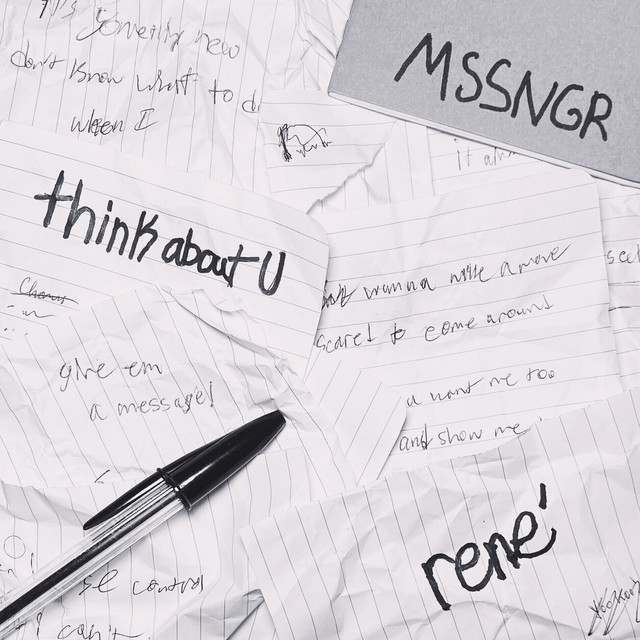 something new
don't know what to do
when I
MSSNGR
think about U
wanna make a move
scared to come around
u want me too
and show me
give em
a message!
rené
control
can't